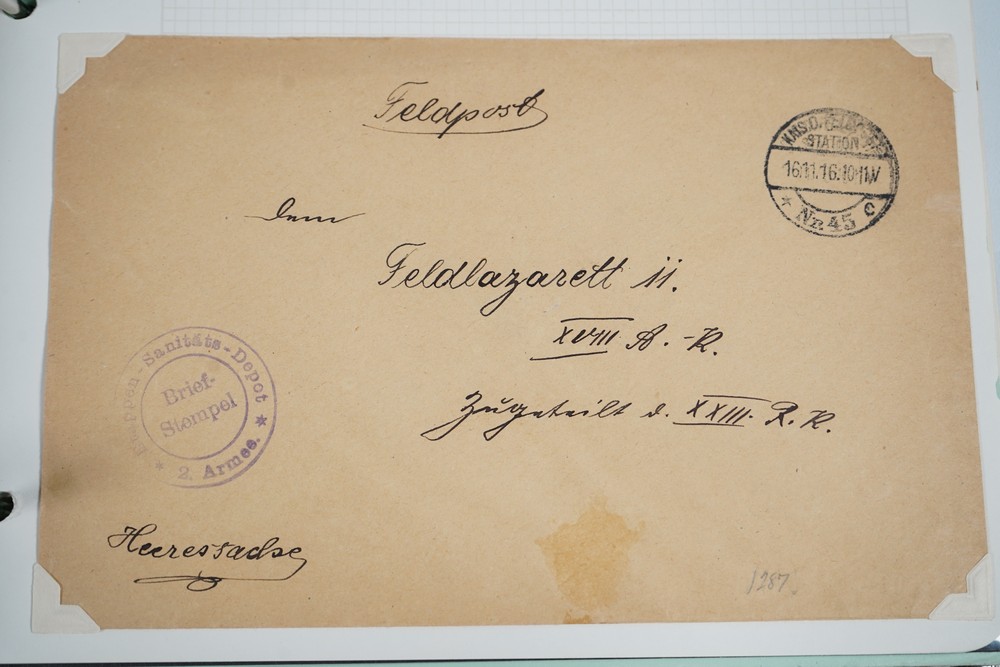 Feldpost
KAIS.D. FELDPOST
STATION
16.11.16.10-11V
* Nr. 45 c
Dem
Feldlazarett 11.
XVIII A.-K.
Zugeteilt d. XXIII. R. K.
Etappen-Sanitäts-Depot
Brief-
Stempel
* 2. Armee. *
Heeressache
1287.